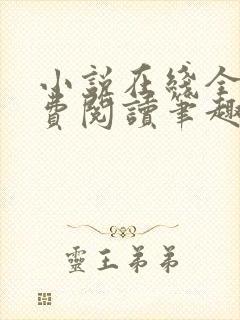 小說在綫全
費閱讀筆趣
靈王弟弟